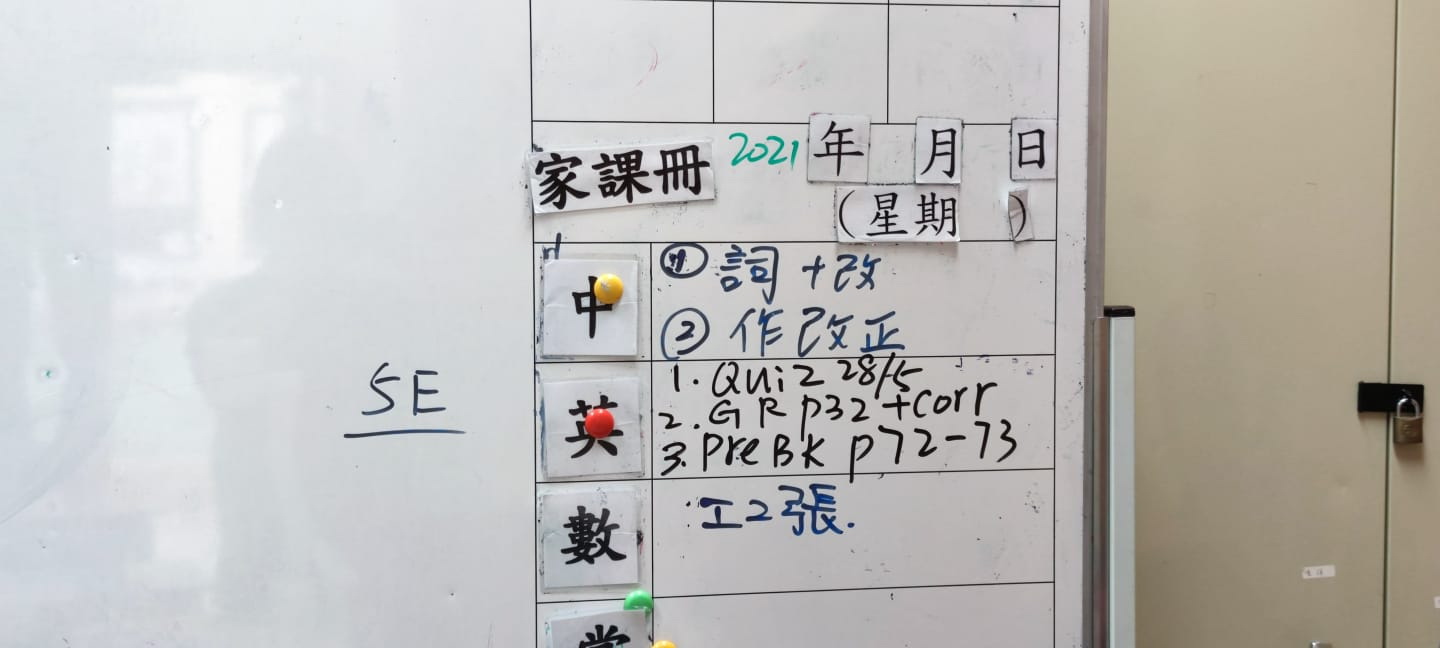 家課冊 2021 年 月 日
(星期 )
中
① 詞 + 改
② 作改正
5E
英
1. Quiz 28/5
2. GR p32 + corr
3. PreBk p72-73
數
工2張.
常